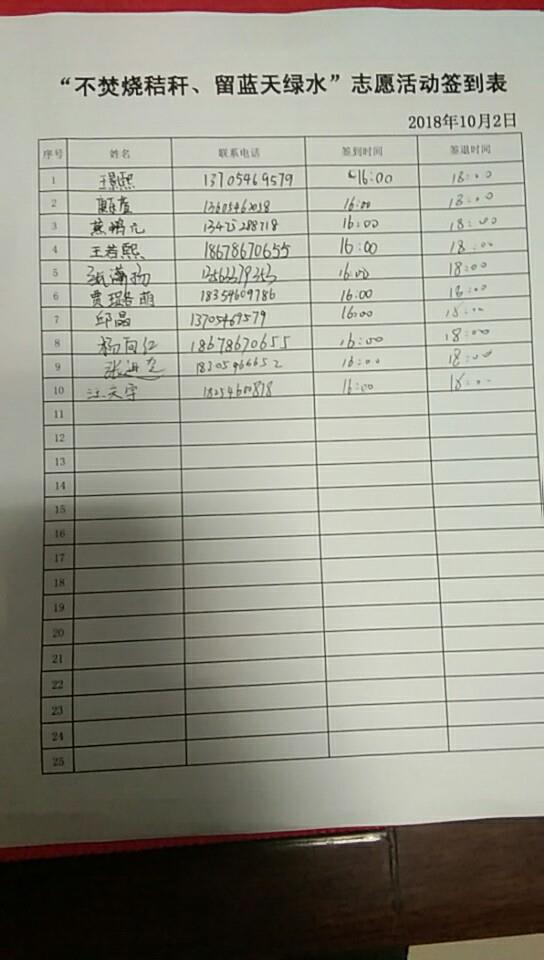 “不焚烧秸秆、留蓝天绿水”志愿活动签到表
2018年10月2日
序号 姓名 联系电话 签到时间 签退时间
1 王景熙 13705469579 16:00 18:00
2 16:00 18:00
3 燕鹏九 13425288718 16:00 18:00
4 王若熙 18678670655 16:00 18:00
5 16:00 18:00
6 贾璐萌 18354609786 16:00 18:00
7 邱晶 13705469579 16:00 18:00
8 杨向红 18678670655 16:00 18:00
9 18305466652 16:00 18:00
10 汪天宇 18254600818 16:00 18:00
11
12
13
14
15
16
17
18
19
20
21
22
23
24
25